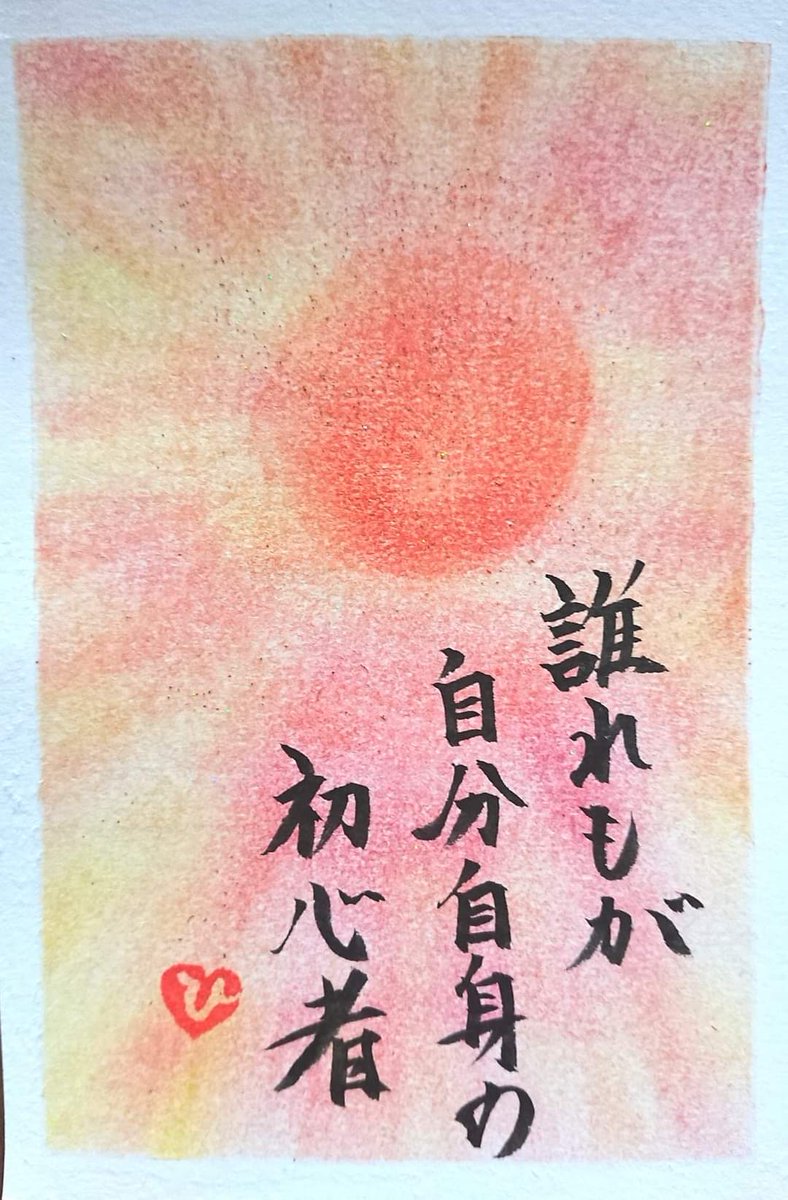 誰れもが
自分自身の
初心者
ひ